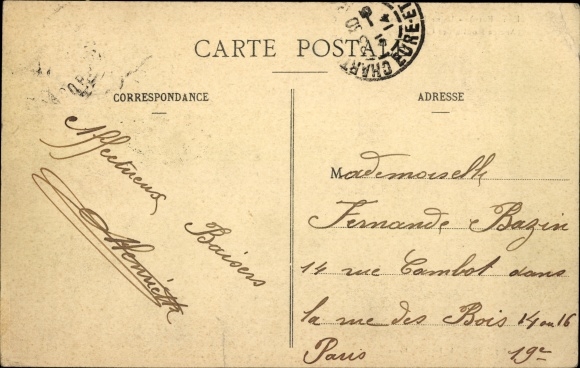 CARTE POSTALE
CHART
EURE-ET
CORRESPONDANCE
ADRESSE
Affectueux
Baisers
Henriette
Mademoiselle
Fernande Bazin
14 rue Cambot dans
la rue des Bois 14 ou 16
Paris 19e